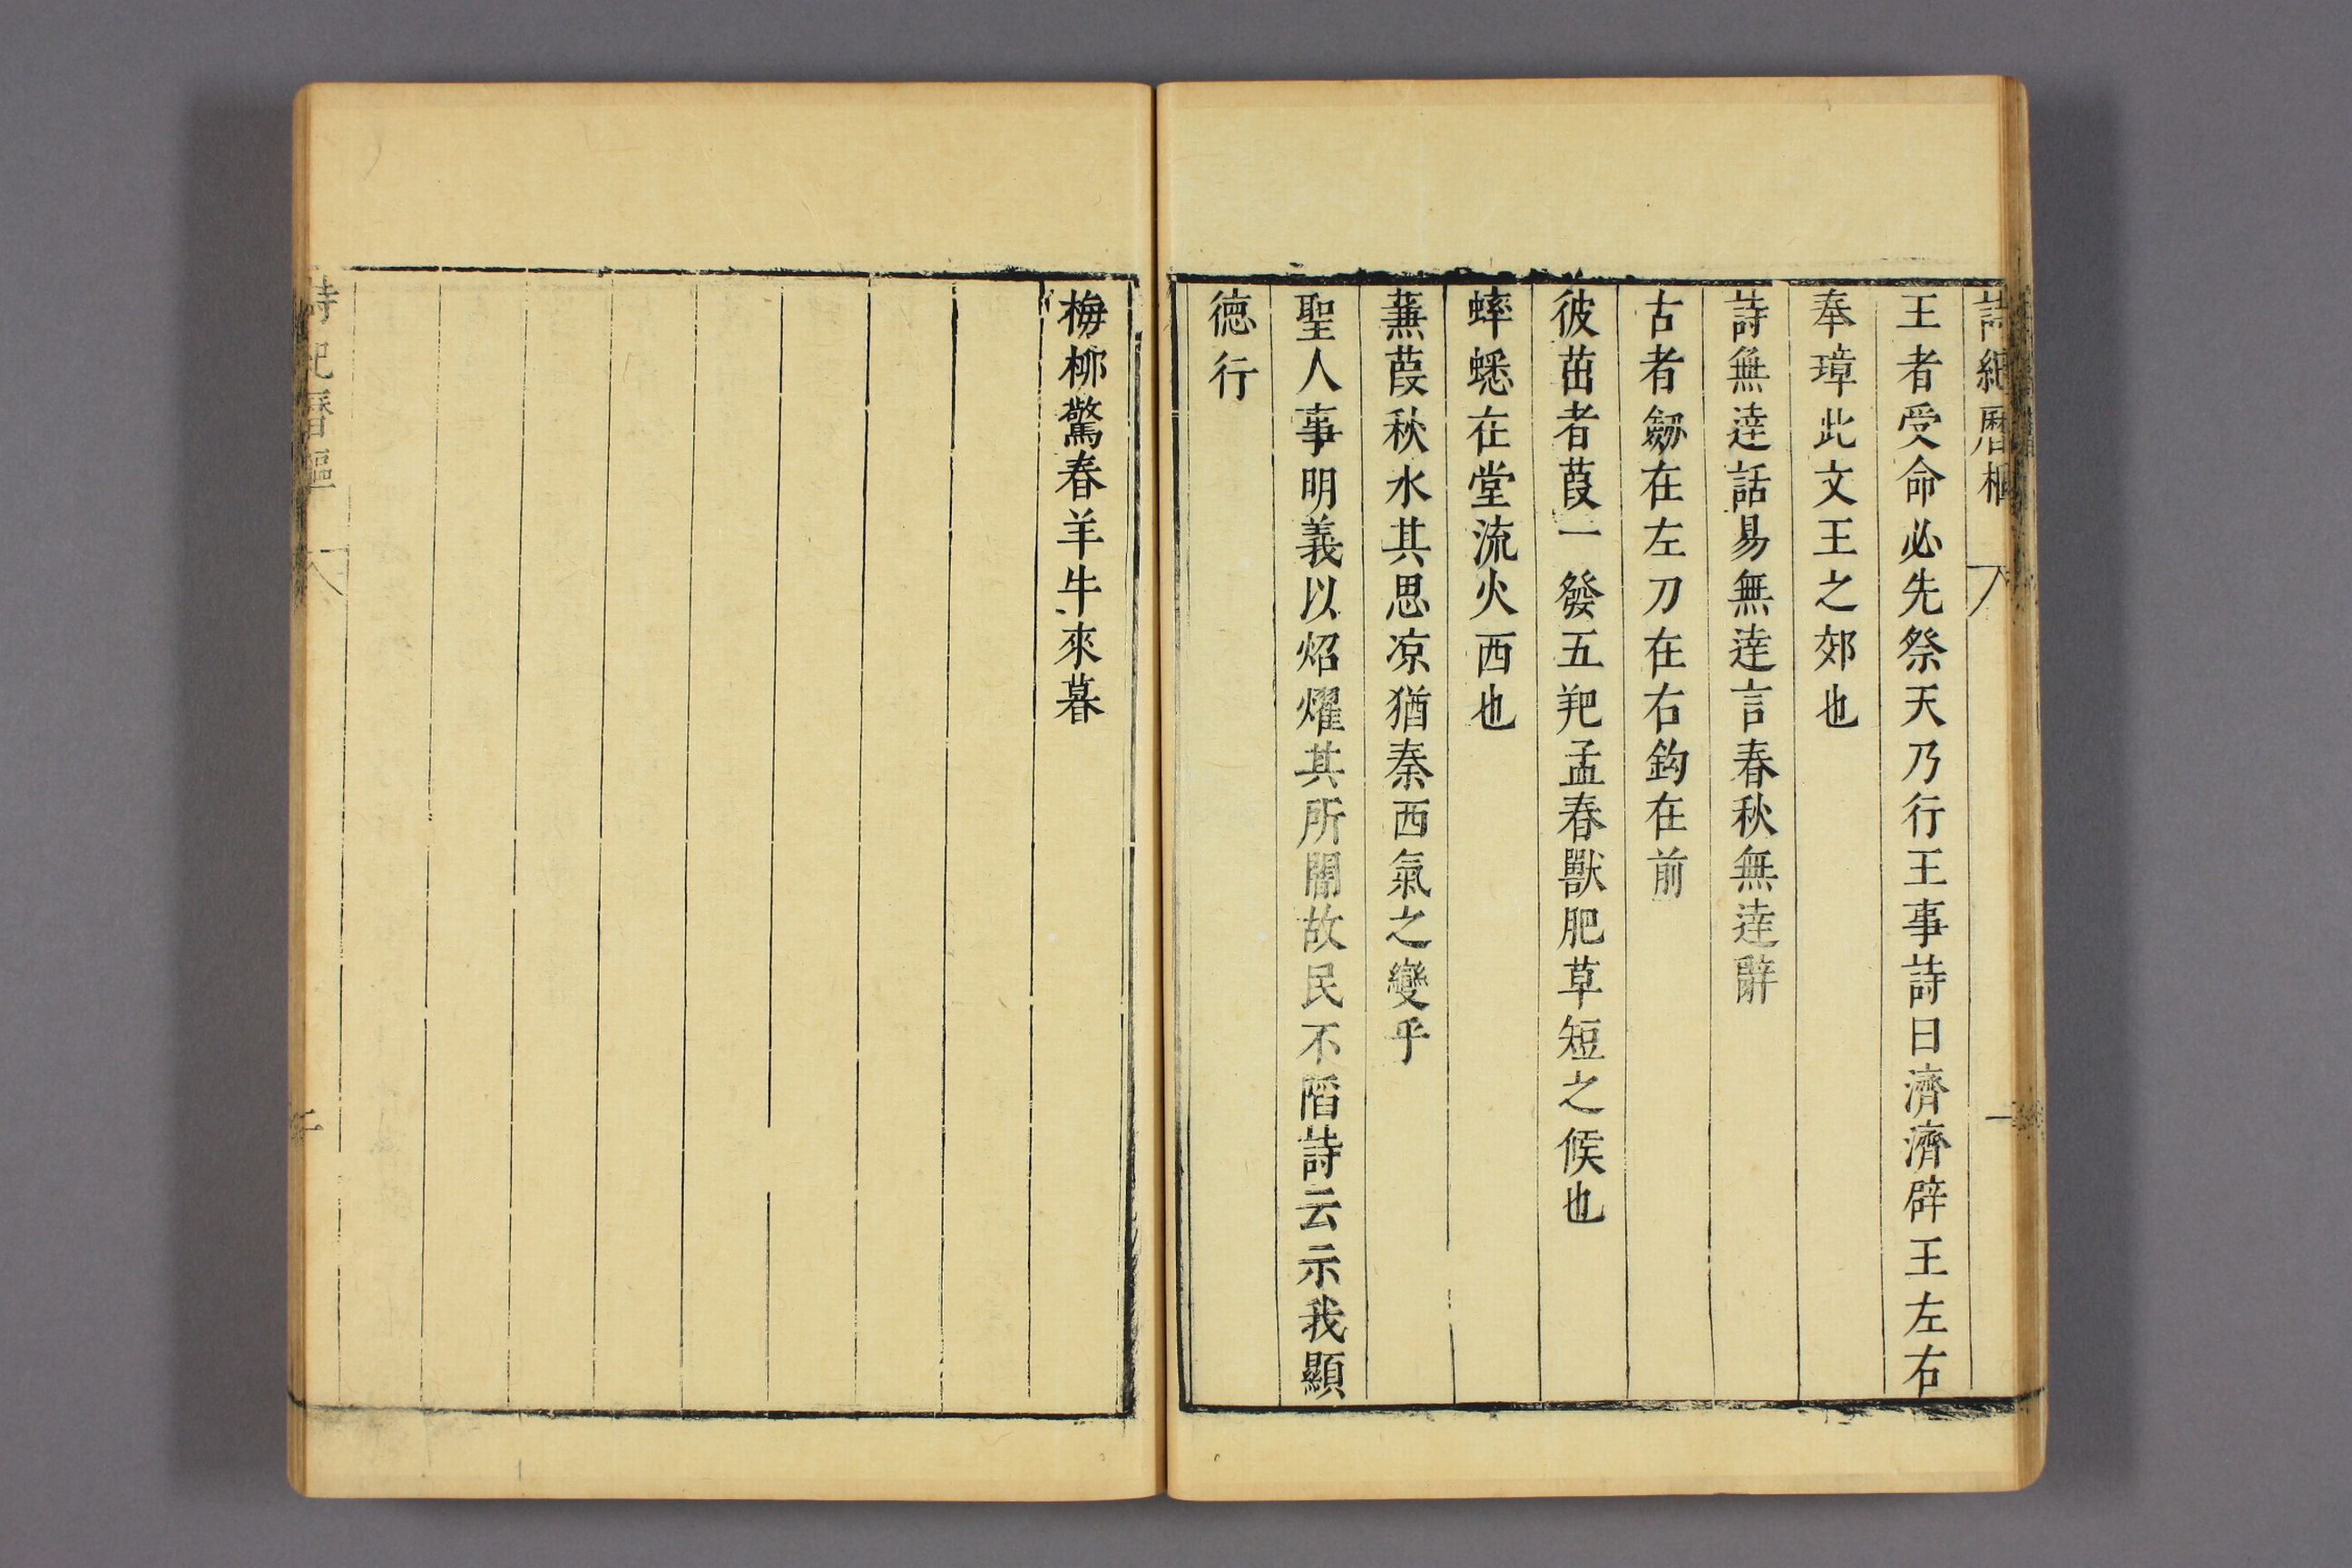 詩紀曆樞 一
王者受命必先祭天乃行王事詩曰濟濟辟王左右
奉璋此文王之郊也
詩無達詁易無達言春秋無達辭
古者劒在左刀在右鈎在前
彼茁者葭一發五豝孟春獸肥草短之候也
蟀蟋在堂流火西也
蒹葭秋水其思凉猶秦西氣之變乎
聖人事明義以炤燿其所闇故民不陷詩云示我顯
德行
梅栁驚春羊牛來暮
詩紀曆樞